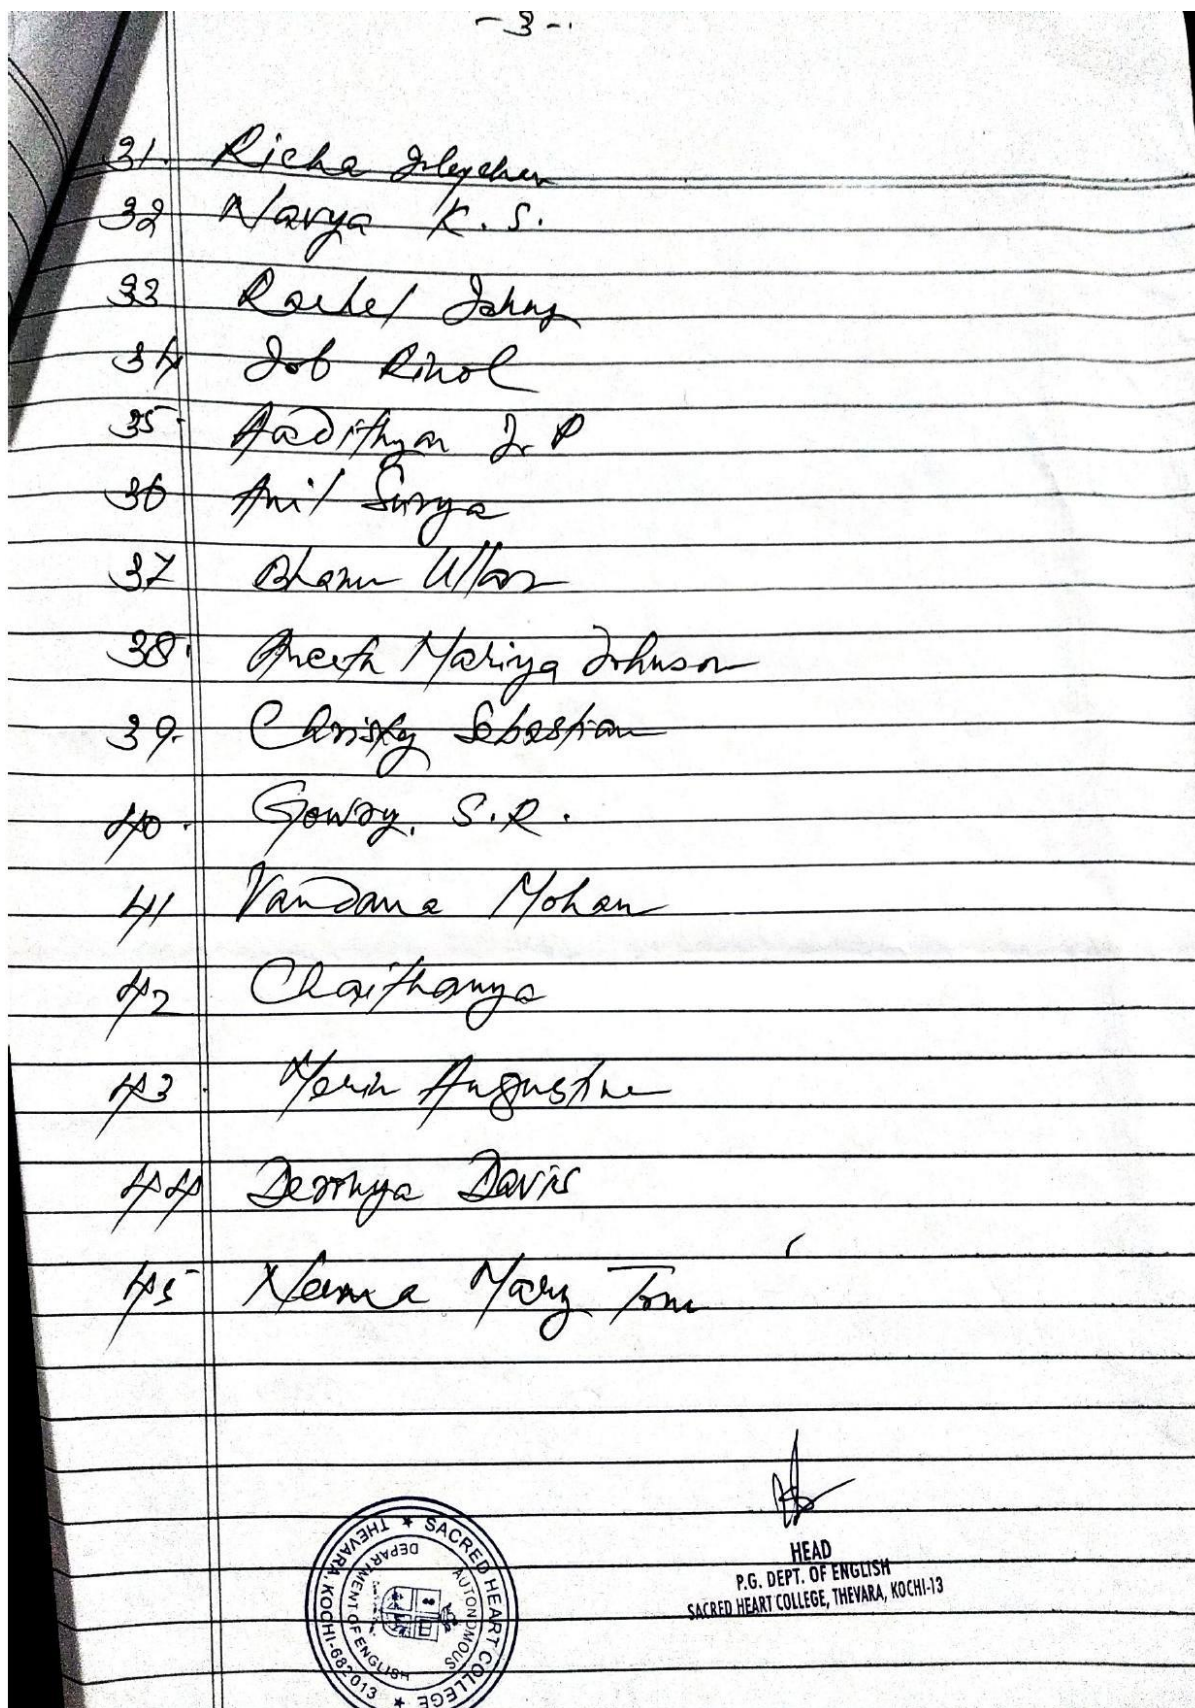 - 3 -
31. Richa
32 Navya K. S.
33 Rachel Johny
34 Job Rinol
35. Aadithyan Jr P
36 Anil Surya
37 Bhanu Ullas
38. Aneeta Mariya Johnson
39. Christy Sebastian
40. Gowry. S.R.
41 Vandana Mohan
42 Chaithanya
43. Merin Augustine
44 Davis
45 Neema Mary Tom
HEAD
P.G. DEPT. OF ENGLISH
SACRED HEART COLLEGE, THEVARA, KOCHI-13
SACRED HEART COLLEGE ★ THEVARA, KOCHI-682013 ★
AUTONOMOUS
DEPARTMENT OF ENGLISH